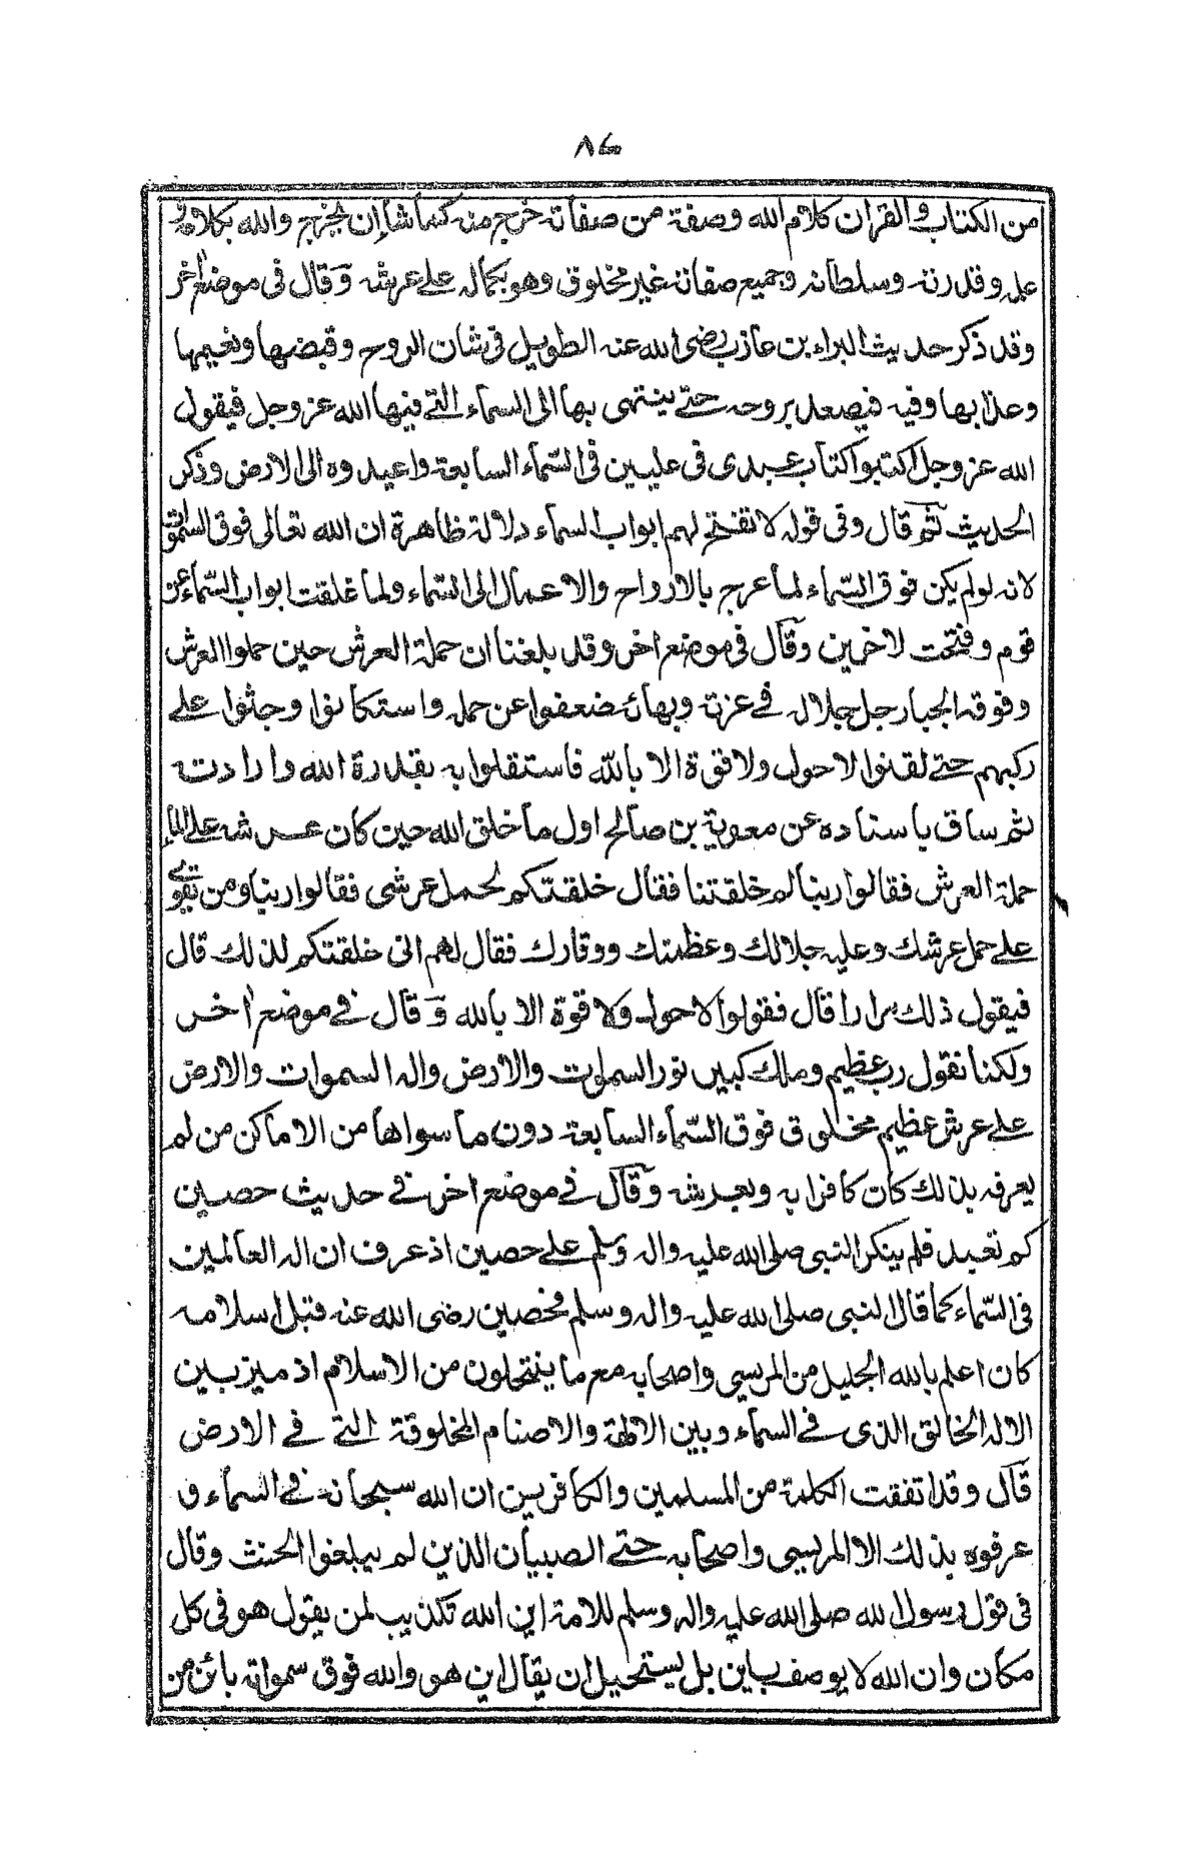 ٨٦
من الكتاب والقران كلام الله وصفة من صفاته خرج منه كما شاء ان يخرج والله بكلامه
علمه وقدرته وسلطانه وجميع صفاته غير مخلوق وهو بكماله على عرشه وقال فى موضع اخر
وقد ذكر حديث البراء بن عازب رضى الله عنه الطويل فى شان الروح وقبضها ونعيمها
وعذابها وفيه فيصعد بروحه حتى ينتهى بها الى السماء التى فيها الله عز وجل فيقول
الله عز وجل اكتبوا كتاب عبدى فى عليين فى السّماء السابعة واعيدوه الى الارض وذكر
الحديث ثم قال وفى قوله لا تفتح لهم ابواب السماء دلالة ظاهرة ان الله تعالى فوق السموات
لانه لو لم يكن فوق السّماء لما عرج بالارواح والاعمال الى السماء ولما غلقت ابواب السّماء عن
قوم وفتحت لاخرين وقال فى موضع اخر وقد بلغنا ان حملة العرش حين حملوا العرش
وفوقه الجبار جل جلاله فى عزته وبهائه ضعفوا عن حمله واستكانوا وجثوا على
ركبهم حتى لقنوا لا حول ولا قوة الا بالله فاستقلوا به بقدرة الله وارادته
ثم ساق باسناده عن معوية بن صالح اول ما خلق الله حين كان عرشه على الماء
حملة العرش فقالوا ربنا لم خلقتنا فقال خلقتكم لحمل عرشى فقالوا ربنا ومن يقوى
على حمل عرشك وعليه جلالك وعظمتك ووقارك فقال لهم انى خلقتكم لذلك قال
فيقول ذلك مرارا قال فقولوا لا حول ولا قوة الا بالله وقال فى موضع اخر
ولكنا نقول رب عظيم وملك كبير نور السموات والارض واله السموات والارض
على عرش عظيم مخلوق فوق السّماء السابعة دون ما سواها من الاماكن من لم
يعرفه بذلك كان كافرا به وبعرشه وقال فى موضع اخر فى حديث حصين
كم تعبد فلم ينكر النبى صلى الله عليه واله وسلم على حصين اذ عرف ان اله العالمين
فى السّماء كما قال النبى صلى الله عليه واله وسلم فحصين رضى الله عنه قبل اسلامه
كان اعلم بالله الجليل من المريسى واصحابه مع ما ينتحلون من الاسلام اذ ميز بين
الاله الخالق الذى فى السماء وبين الالهة والاصنام المخلوقة التى فى الارض
قال وقد اتفقت الكلمة من المسلمين والكافرين ان الله سبحانه فى السماء و
عرفوه بذلك الا المريسى واصحابه حتى الصبيان الذين لم يبلغوا الحنث وقال
فى قول رسول الله صلى الله عليه واله وسلم للامة اين الله تكذيب لمن يقول هو فى كل
مكان وان الله لا يوصف باين بل يستحيل ان يقال اين هو والله فوق سمواته بائن من